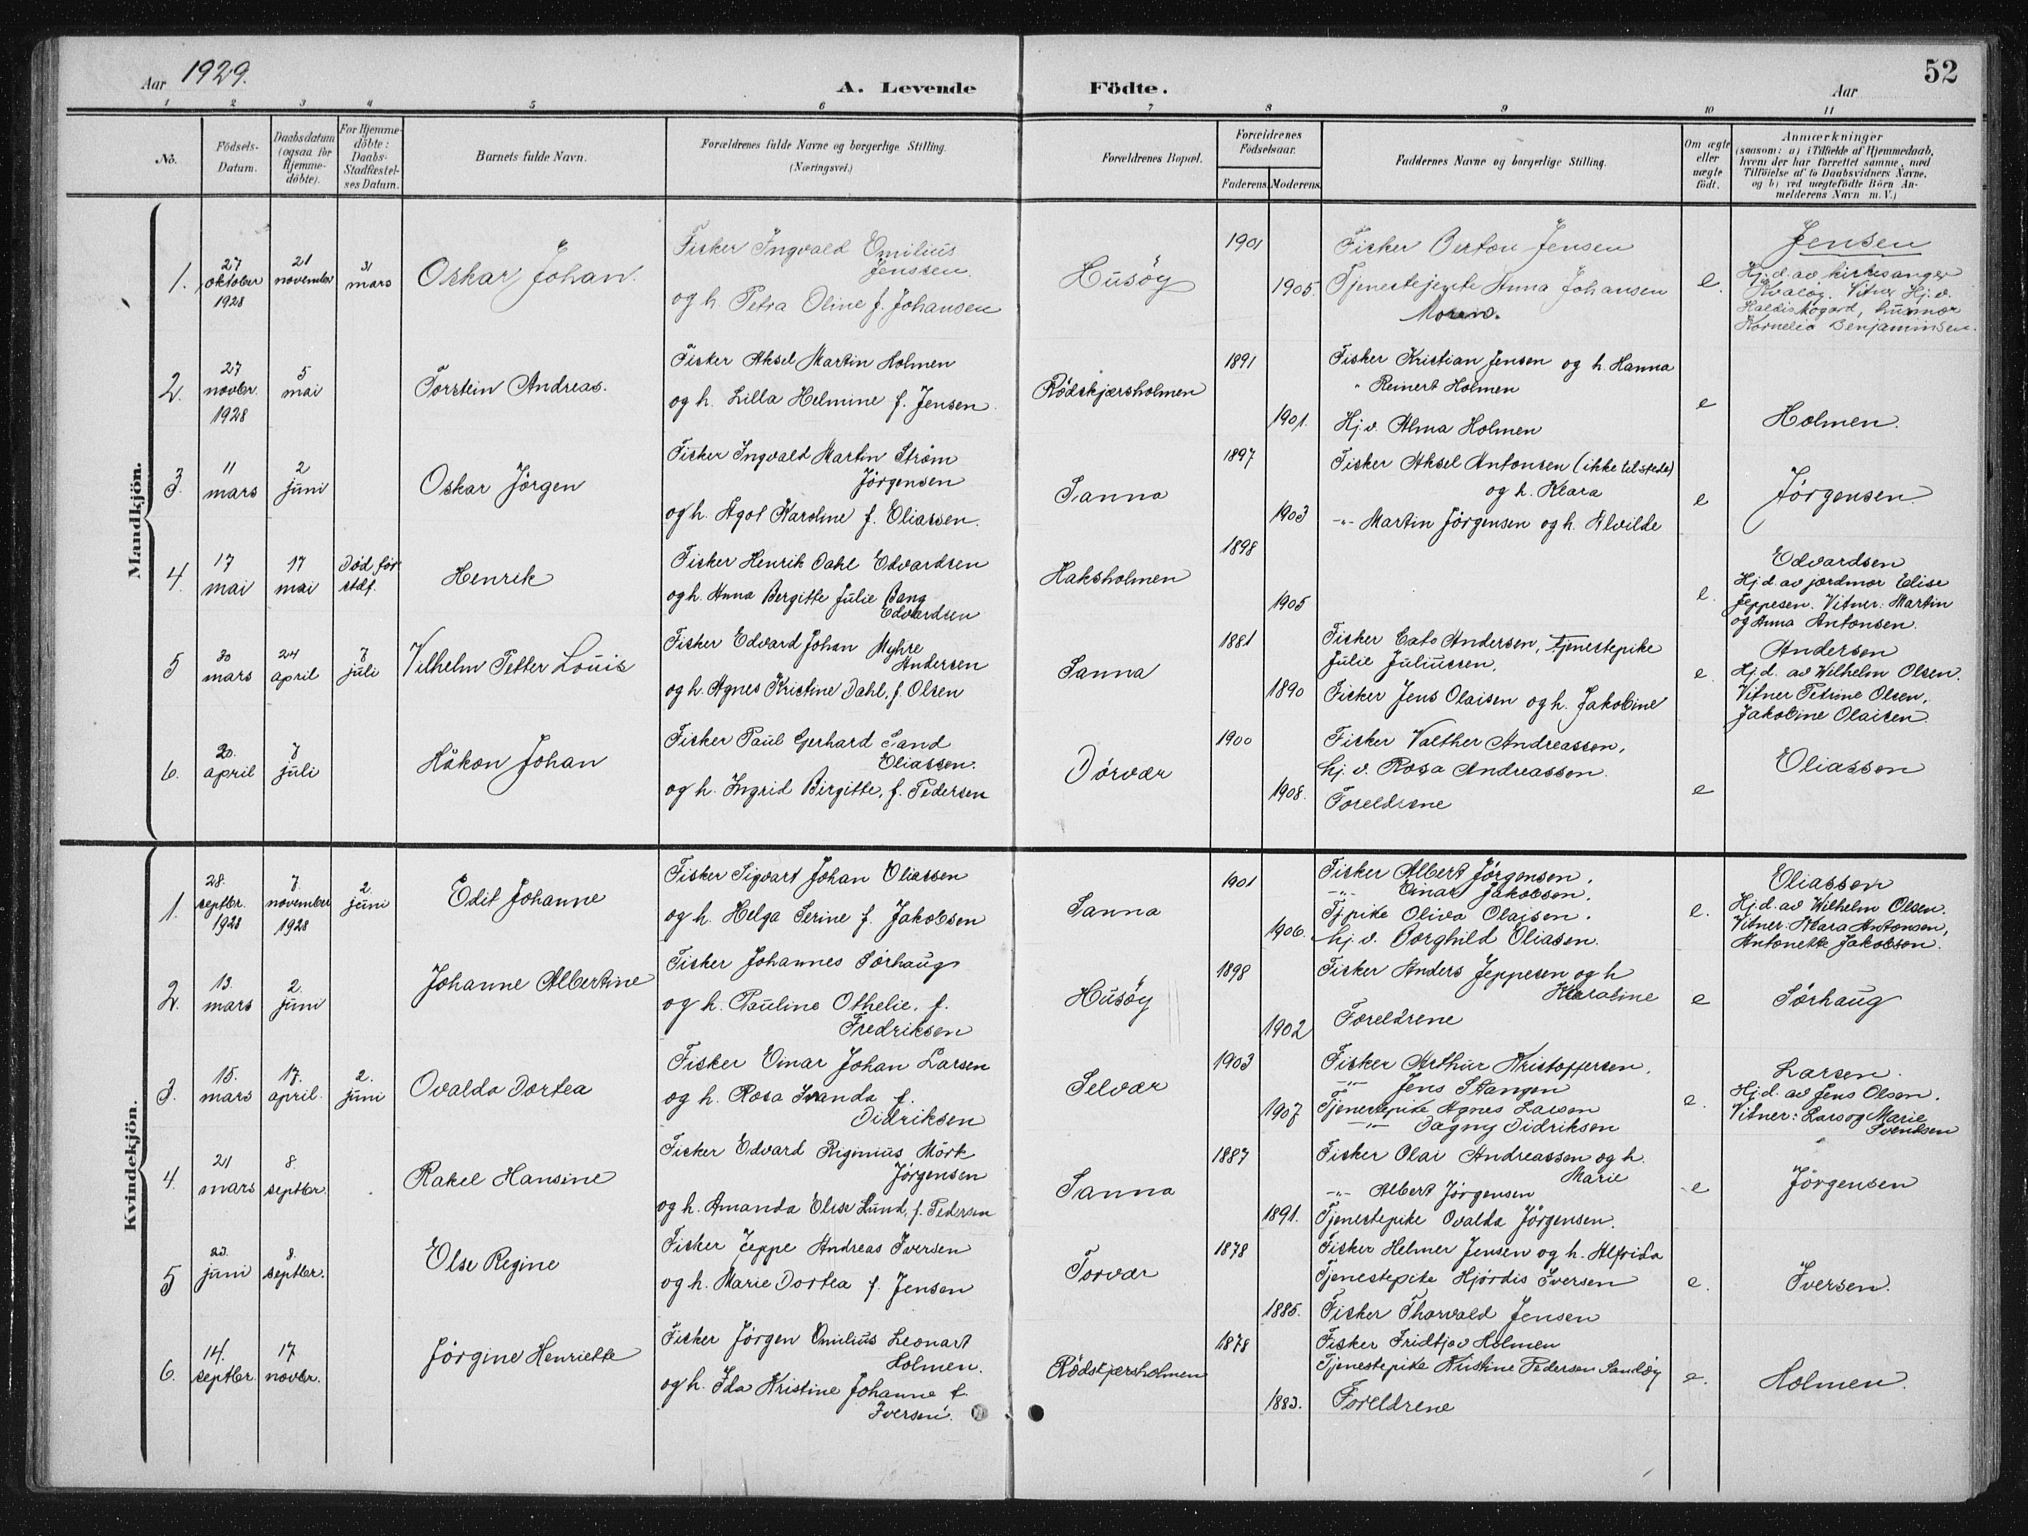 Aar 1929.
A. Levende Födte.
Aar
52
1 2 3 4 5 6 7 8 9 10 11
No.
Födsels-Datum.
Daabsdatum (ogsaa for Hjemmedöbte).
For Hjemmedöbte: Daabs-Stadfæstelses Datum.
Barnets fulde Navn.
Forældrenes fulde Navne og borgerlige Stilling.
(Næringsvei.)
Forældrenes Bopæl.
Forældrenes Födselsaar.
Faderens. Moderens.
Faddernes Navne og borgerlige Stilling.
Om ægte eller uægte födt.
Anmærkninger
(saasom: a) i Tilfælde af Hjemmedaab, hvem der har forrettet samme, med Tilföielse af to Daabsvidners Navne, og b) ved uægtefödte Börn Anmelderens Navn m. V.)
Mandkjön.
1. 27 oktober 1928 21 november 31 mars Oskar Johan.
Fisker Ingvald Emilius Jenssen
og h. Petra Oline f. Johansen
Husöy 1901 1905.
Fisker Berton Jensen
Tjenestejente Anna Johansen
Moren.
e.
Jensen
Hj.d. av kirkesanger
Kvaløy. Vitner Hj.v.
Haldis Aogard, husmor
Kornelia Benjaminsen.
2. 27 novbr. 1928 5 mai Torstein Andreas.
Fisker Aksel Martin Holmen
og h. Lilla Helmine f. Jensen.
Rødskjærsholmen 1891 1901.
Fisker Kristian Jensen og h. Hanna
" Reinert Holmen
Hj.v. Alma Holmen
e
Holmen.
3. 11 mars 2 juni Oskar Jörgen
Fisker Ingvald Martin Strøm Jørgensen
og h. Agot Karoline f. Eliassen.
Sanna 1897 1903
Fisker Aksel Antonsen (ikke tilstede)
og h. Klara
-"- Martin Jørgensen og h. Alvilde
e
Jørgensen
4. 17 mai 17 mai Død før stdf. Henrik
Fisker Henrik Dahl Edvardsen
og h. Anna Bergitte Julie Bang Edvardsen
Haksholmen 1898 1905
e.
Edvardsen
Hj.d. av jordmor Elise
Jeppesen. Vitner: Martin
og Anna Antonsen.
5 30 mars 24 april 7 juli Vilhelm Petter Louis
Fisker Edvard Johan Myhre Andersen
og h. Agnes Kristine Dahl, f. Olsen
Sanna 1881 1890
Fisker Cato Andersen, Tjenestepike
Julie Juliussen,
Fisker Jens Olaisen og h. Jakobine
e.
Andersen
Hj.d. av Wilhelm Olsen.
Vitner Petrine Olsen,
Jakobine Olaisen.
6. 20. april 7 juli Håkon Johan
Fisker Paul Gerhard Sand Eliassen.
og h. Ingrid Birgitte, f. Pedersen
Dørvær 1900 1908.
Fisker Valther Andreassen,
hj.v. Rosa Andreassen.
Foreldrene
e
Eliassen
Kvindekjön.
1. 28. septbr. 1928 7. november 1928 2. juni Edit Johanne
Fisker Sigvart Johan Eliassen
og h. Helga Serine f. Jakobsen
Sanna 1901 1906.
Fisker Albert Jörgensen,
-"- Einar Jakobsen.
Tjpike Oliva Olaisen.
hj.v. Borghild Eliasen.
e.
Eliassen
Hj.d. av Wilhelm Olsen.
Vitner: Klara Antonsen,
Antonette Jakobsen.
2. 13. mars 2. juni Johanne Albertine
Fisker Johannes Sørhaug
og h. Pauline Othelie, f. Fredriksen
Husöy 1898 1902
Fisker Anders Jeppesen og h Karoline
Foreldrene
e
Sørhaug
3. 15. mars 17. april. 2. juni Ovalda Dortea
Fisker Einar Johan Larsen
og h. Rosa Ivanda f. Didriksen
Selvær 1903 1907
Fisker Arthur Kristoffersen,
-"- Jens Stangen
Tjenestepike Agnes Larsen
-"- Dagny Didriksen
e.
Larsen.
Hj.d. av Jens Olsen.
Vitner: Lars og Marie
Svendsen
4. 21 mars 8. septbr. Rakel Hansine
Fisker Edvard Riginius Mörk Jørgensen
og h. Amanda Elise Lund, f. Pedersen
Sanna 1887 1891.
Fisker Olai Andreassen og h. Marie
-"- Albert Jørgensen
Tjenestepike Ovalda Jørgensen.
e
Jørgensen
5 23. juni 8. septbr. Else Regine
Fisker Jeppe Andreas Iversen
og h. Marie Dortea f. Jensen
Torvær 1878 1885.
Fisker Helmer Jensen og h. Alfrida
Tjenestepike Hjørdis Iversen
Fisker Thorvald Jensen
e.
Iversen.
6. 14. septbr. 17 novbr. Jörgine Henriette
Fisker Jørgen Emilius Leonart Holmen.
og h. Ida Kristine Johanne f. Iversen.
Rødskjærsholmen 1878 1883.
Fisker Fridtjov Holmen
Tjenestepike Kristine Pedersen Sandöy
Foreldrene
e.
Holmen.